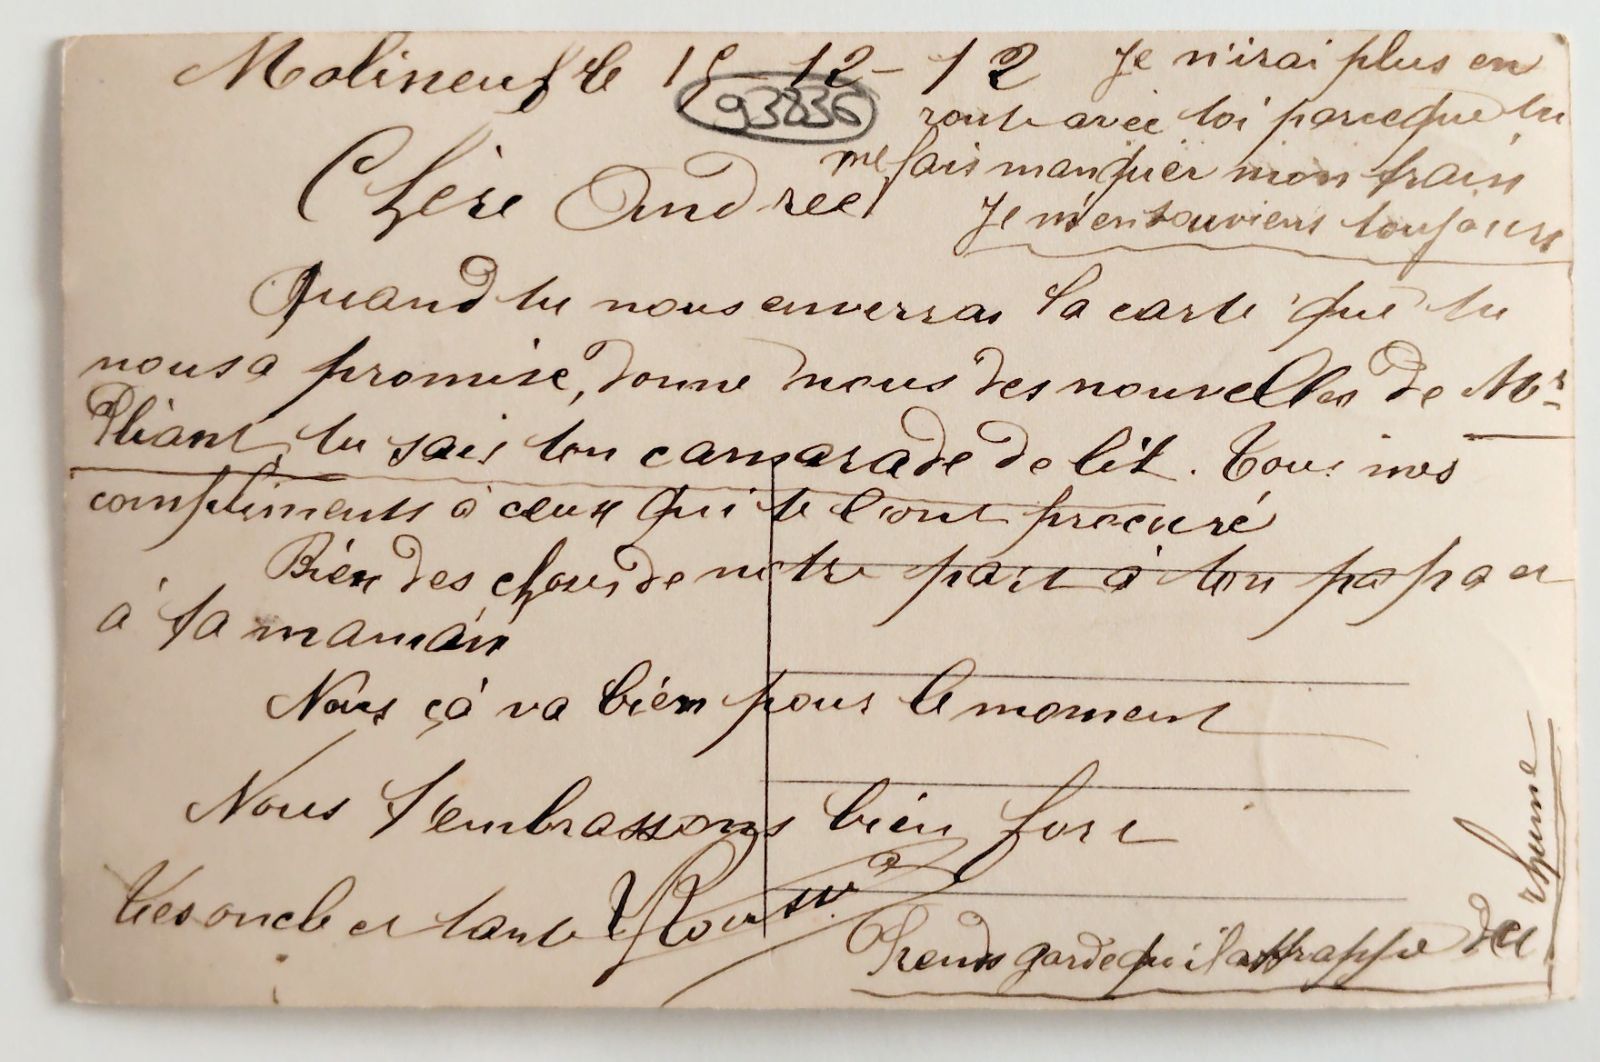 Molineuf le 15-12-12
93836
Je n'irai plus en
route avec toi parceque tu
me fais manquer mon train
Je m'en souviens toujours
Chère Andrée
Quand tu nous enverras la carte que tu
nous a promise, donne nous des nouvelles de Mr
Pliant, tu sais ton camarade de lit. Tous nos
compliments à ceux qui te l'ont procuré
Bien des choses de notre part à ton papa et
à ta maman
Nous çà va bien pour le moment
Nous t'embrassons bien fort
Tes oncle et tante
Prends garde qu'il attrappe du
rhume